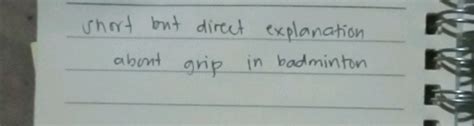 short but direct explanation
about grip in badminton